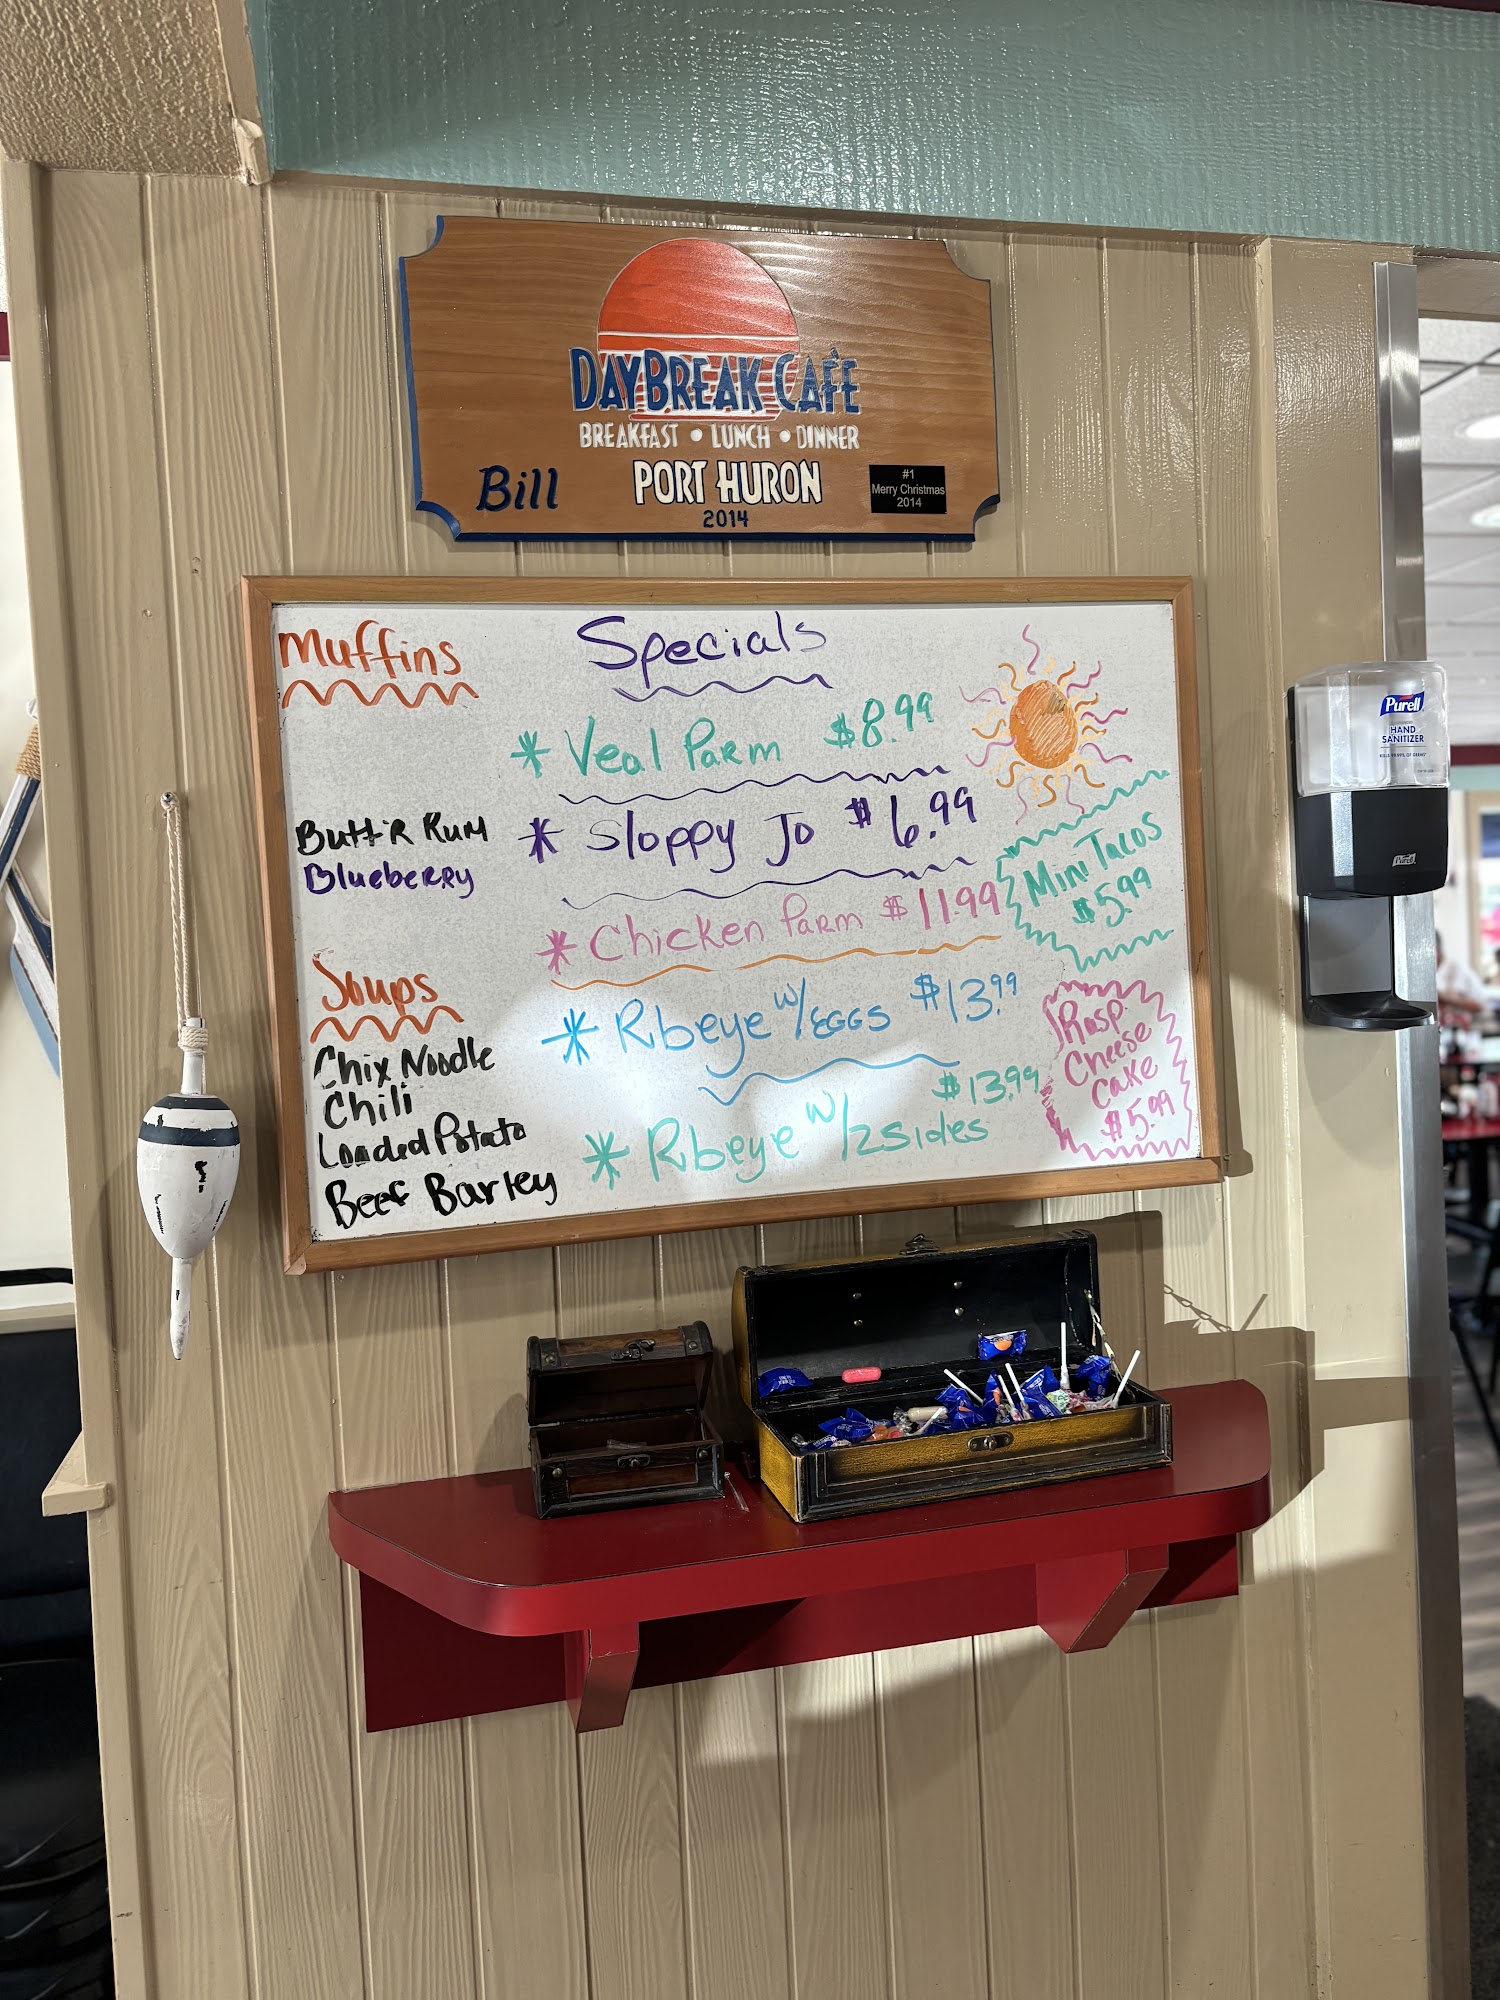 DAYBREAK CAFE
BREAKFAST • LUNCH • DINNER
Bill
PORT HURON
2014
#1
Merry Christmas
2014
Muffins
Butt'R Rum
Blueberry
Soups
Chix Noodle
Chili
Loaded Potato
Beef Barley
Specials
* Veal Parm $8.99
* Sloppy Jo $6.99
* Chicken Parm $11.99
* Ribeye w/EGGS $13.99
* Ribeye w/2 sides $13.99
Mini Tacos
$5.99
Rasp
Cheese
Cake
$5.99
Purell
HAND
SANITIZER
Purell